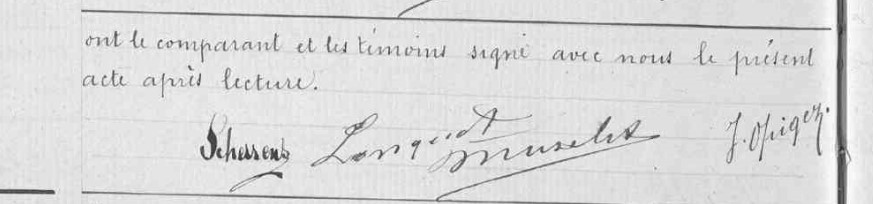 ont le comparant et les témoins signé avec nous le présent
acte après lecture.
Scherrentz Longuet Muselet J. Opigez